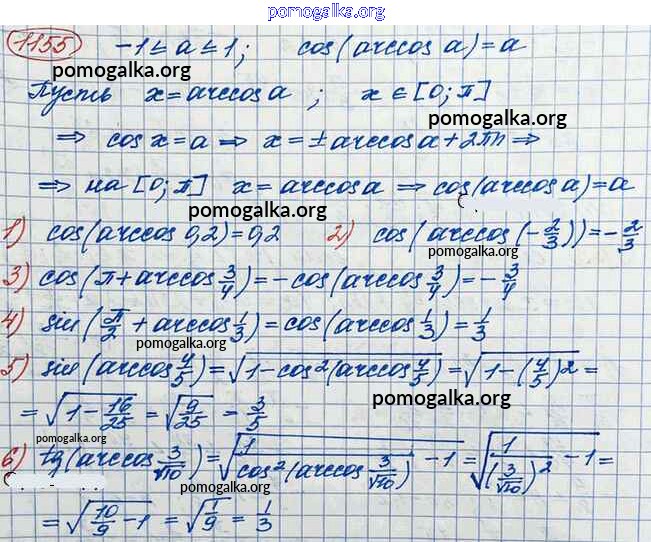 pomogalka.org
1155 -1 ≤ a ≤ 1; cos(arccos a) = a
pomogalka.org
Пусть x = arccos a; x ∈ [0; π]
pomogalka.org
⇒ cos x = a ⇒ x = ± arccos a + 2πn ⇒
⇒ на [0; π] x = arccos a ⇒ cos(arccos a) = a
pomogalka.org
1) cos(arccos 0,2) = 0,2 2) cos(arccos(-2/3)) = -2/3
pomogalka.org
3) cos(π + arccos 3/4) = -cos(arccos 3/4) = -3/4
4) sin(π/2 + arccos 1/3) = cos(arccos 1/3) = 1/3
pomogalka.org
5) sin(arccos 4/5) = √(1 - cos²(arccos 4/5)) = √(1 - (4/5)²) =
= √(1 - 16/25) = √(9/25) = 3/5
pomogalka.org
pomogalka.org
6) tg(arccos 3/√10) = √(1/cos²(arccos 3/√10) - 1) = √(1/(3/√10)² - 1) =
pomogalka.org
= √(10/9 - 1) = √(1/9) = 1/3